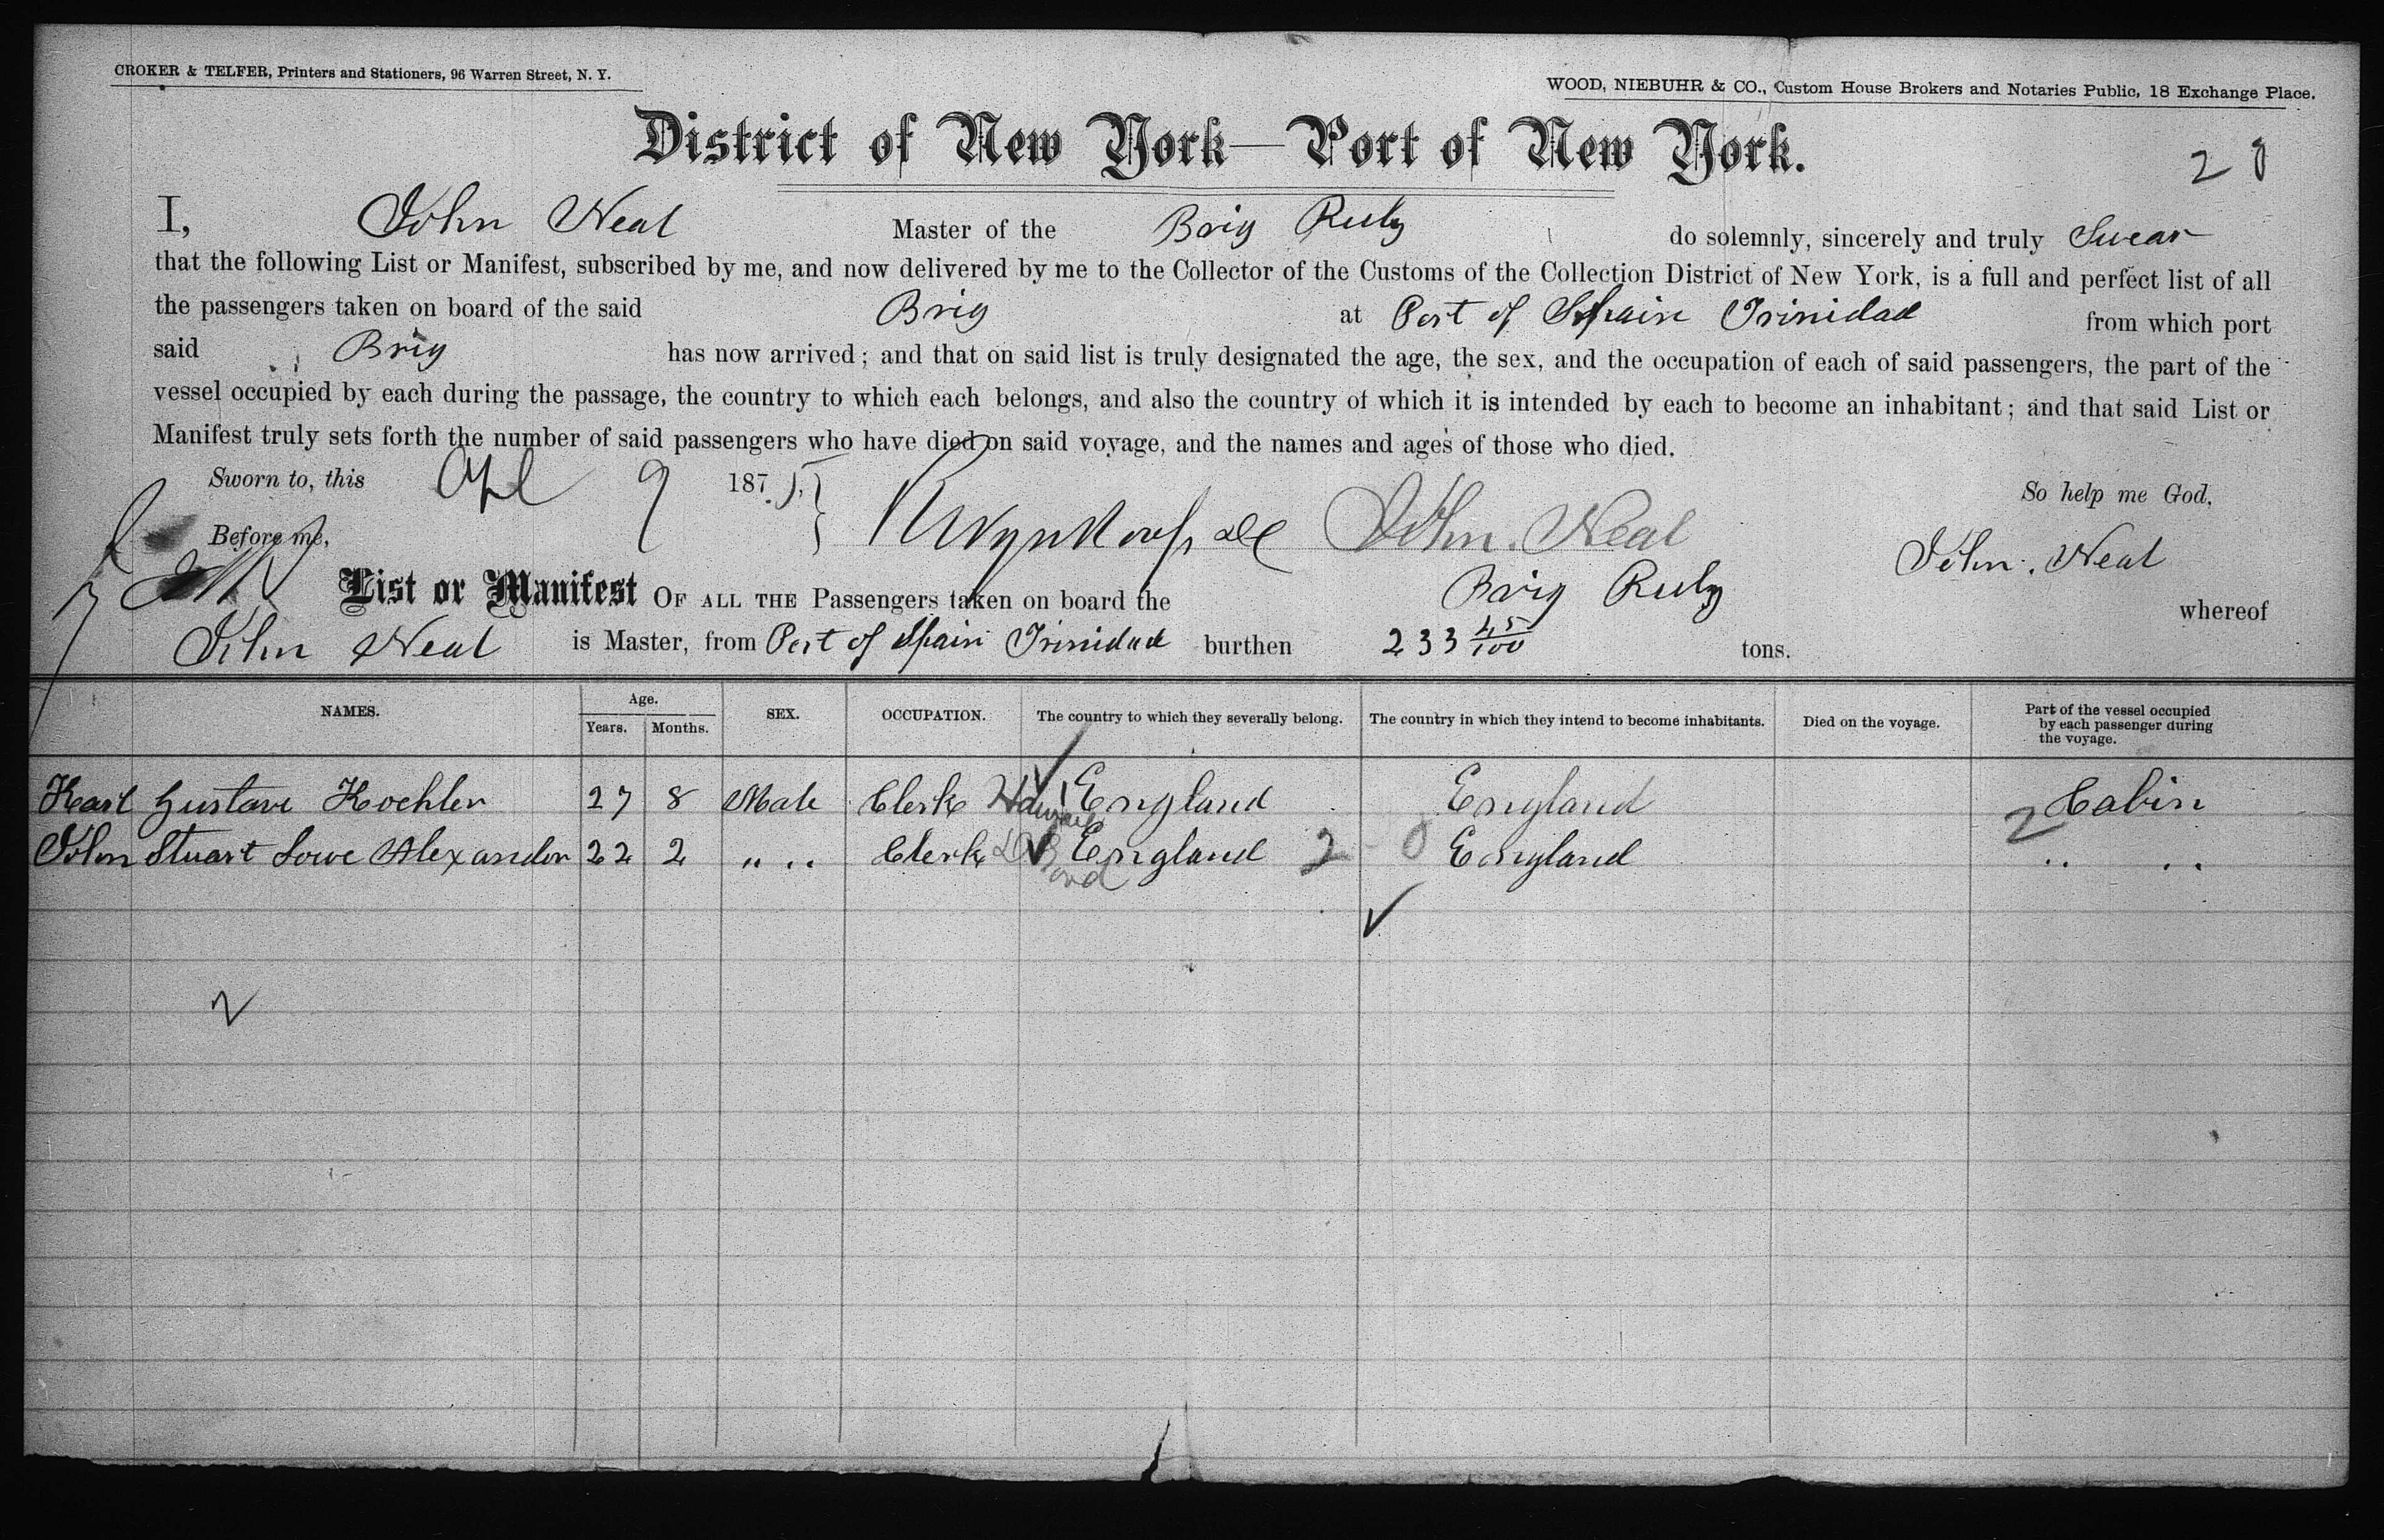 CROKER & TELFER, Printers and Stationers, 96 Warren Street, N. Y.
WOOD, NIEBUHR & CO., Custom House Brokers and Notaries Public, 18 Exchange Place.
District of New York—Port of New York.
I, John Neal Master of the Brig Ruby do solemnly, sincerely and truly Swear
that the following List or Manifest, subscribed by me, and now delivered by me to the Collector of the Customs of the Collection District of New York, is a full and perfect list of all
the passengers taken on board of the said Brig at Port of Spain Trinidad from which port
said Brig has now arrived; and that on said list is truly designated the age, the sex, and the occupation of each of said passengers, the part of the
vessel occupied by each during the passage, the country to which each belongs, and also the country of which it is intended by each to become an inhabitant; and that said List or
Manifest truly sets forth the number of said passengers who have died on said voyage, and the names and ages of those who died.
Sworn to, this Apl 9 1875. So help me God,
Before me, John. Neal John. Neal
List or Manifest OF ALL THE Passengers taken on board the Brig Ruby whereof
John Neal is Master, from Port of Spain Trinidad burthen 233 45/100 tons.
NAMES. Age. Years. Months. SEX. OCCUPATION. The country to which they severally belong. The country in which they intend to become inhabitants. Died on the voyage. Part of the vessel occupied by each passenger during the voyage.
Karl Gustave Koehler 27 8 Male Clerk England England Cabin
2
John Stuart Lowe Alexander 22 2 " " Clerk England 2 0 England " "
2